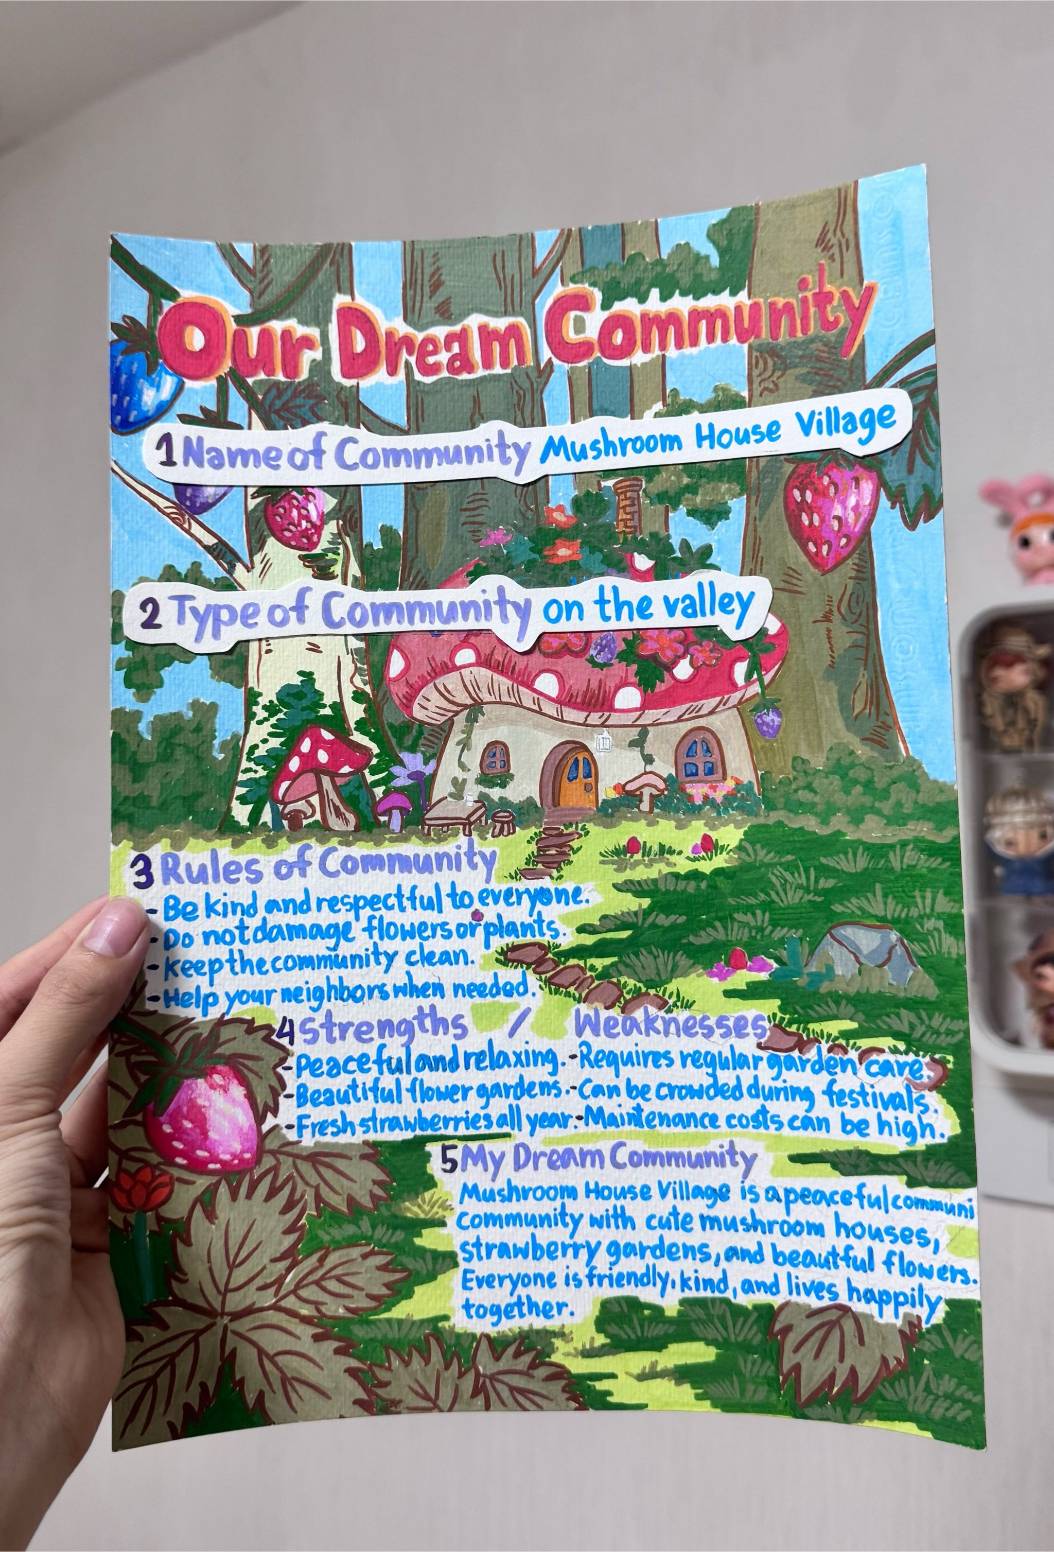 Our Dream Community
1 Name of Community Mushroom House Village
2 Type of Community on the valley
3 Rules of Community
- Be kind and respectful to everyone.
- Do not damage flowers or plants.
- keep the community clean.
- Help your neighbors when needed.
4 Strengths / Weaknesses
- Peaceful and relaxing. - Requires regular garden care.
- Beautiful flower gardens. - Can be crowded during festivals.
- Fresh strawberries all year. - Maintenance costs can be high.
5 My Dream Community
Mushroom House Village is a peaceful communi
community with cute mushroom houses,
strawberry gardens, and beautful flowers.
Everyone is friendly, kind, and lives happily
together.